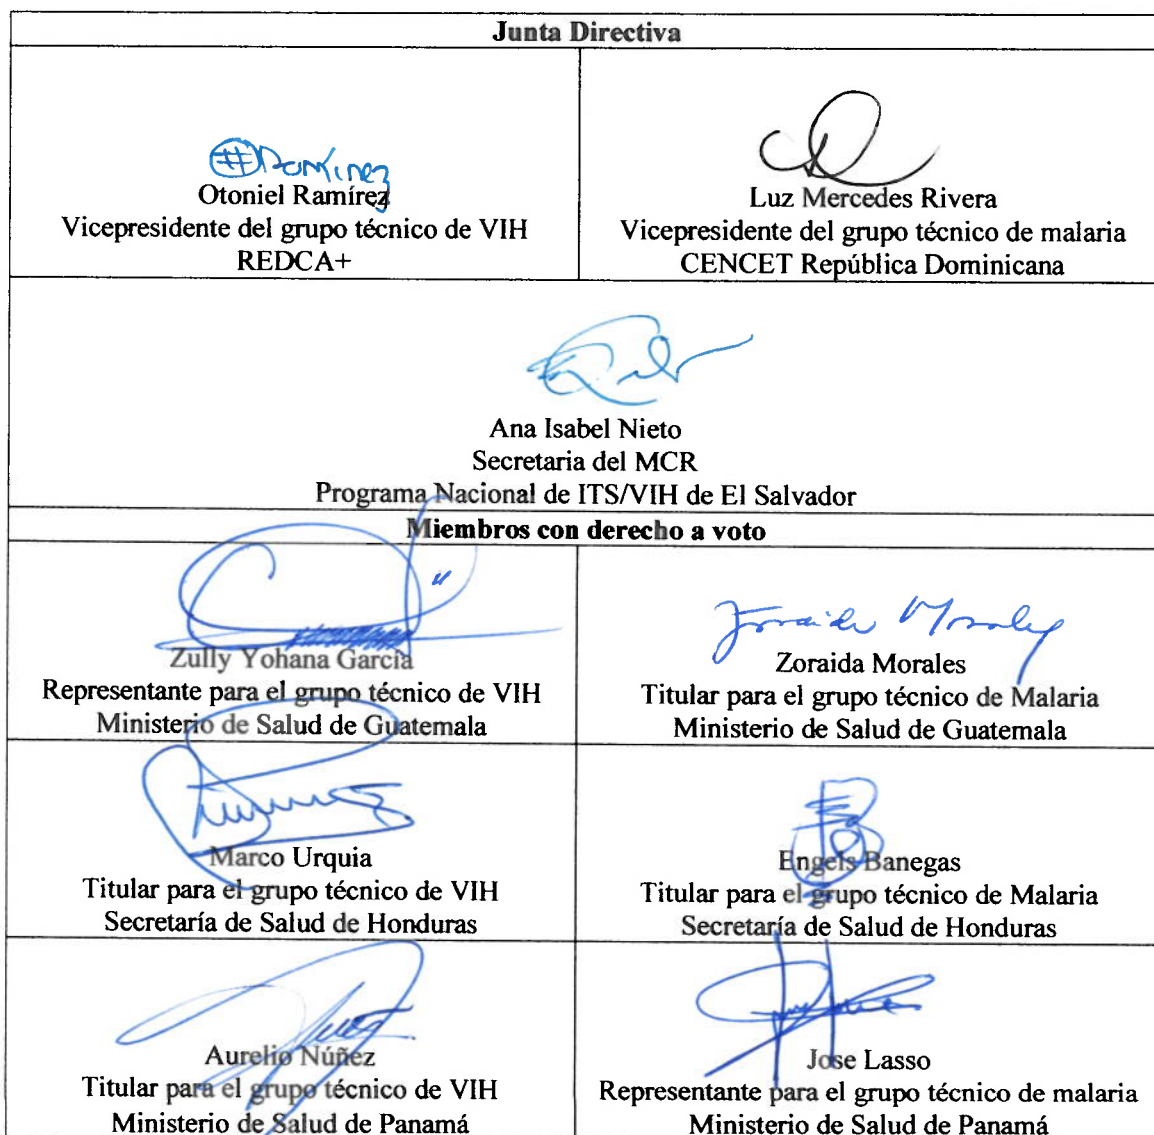 Junta Directiva
#Ramírez
Otoniel Ramírez
Vicepresidente del grupo técnico de VIH
REDCA+
Luz Mercedes Rivera
Vicepresidente del grupo técnico de malaria
CENCET República Dominicana
Ana Isabel Nieto
Secretaria del MCR
Programa Nacional de ITS/VIH de El Salvador
Miembros con derecho a voto
Zully Yohana García
Representante para el grupo técnico de VIH
Ministerio de Salud de Guatemala
Zoraida Morales
Zoraida Morales
Titular para el grupo técnico de Malaria
Ministerio de Salud de Guatemala
Marco Urquia
Titular para el grupo técnico de VIH
Secretaría de Salud de Honduras
Engels Banegas
Titular para el grupo técnico de Malaria
Secretaría de Salud de Honduras
Aurelio Núñez
Titular para el grupo técnico de VIH
Ministerio de Salud de Panamá
Jose Lasso
Representante para el grupo técnico de malaria
Ministerio de Salud de Panamá